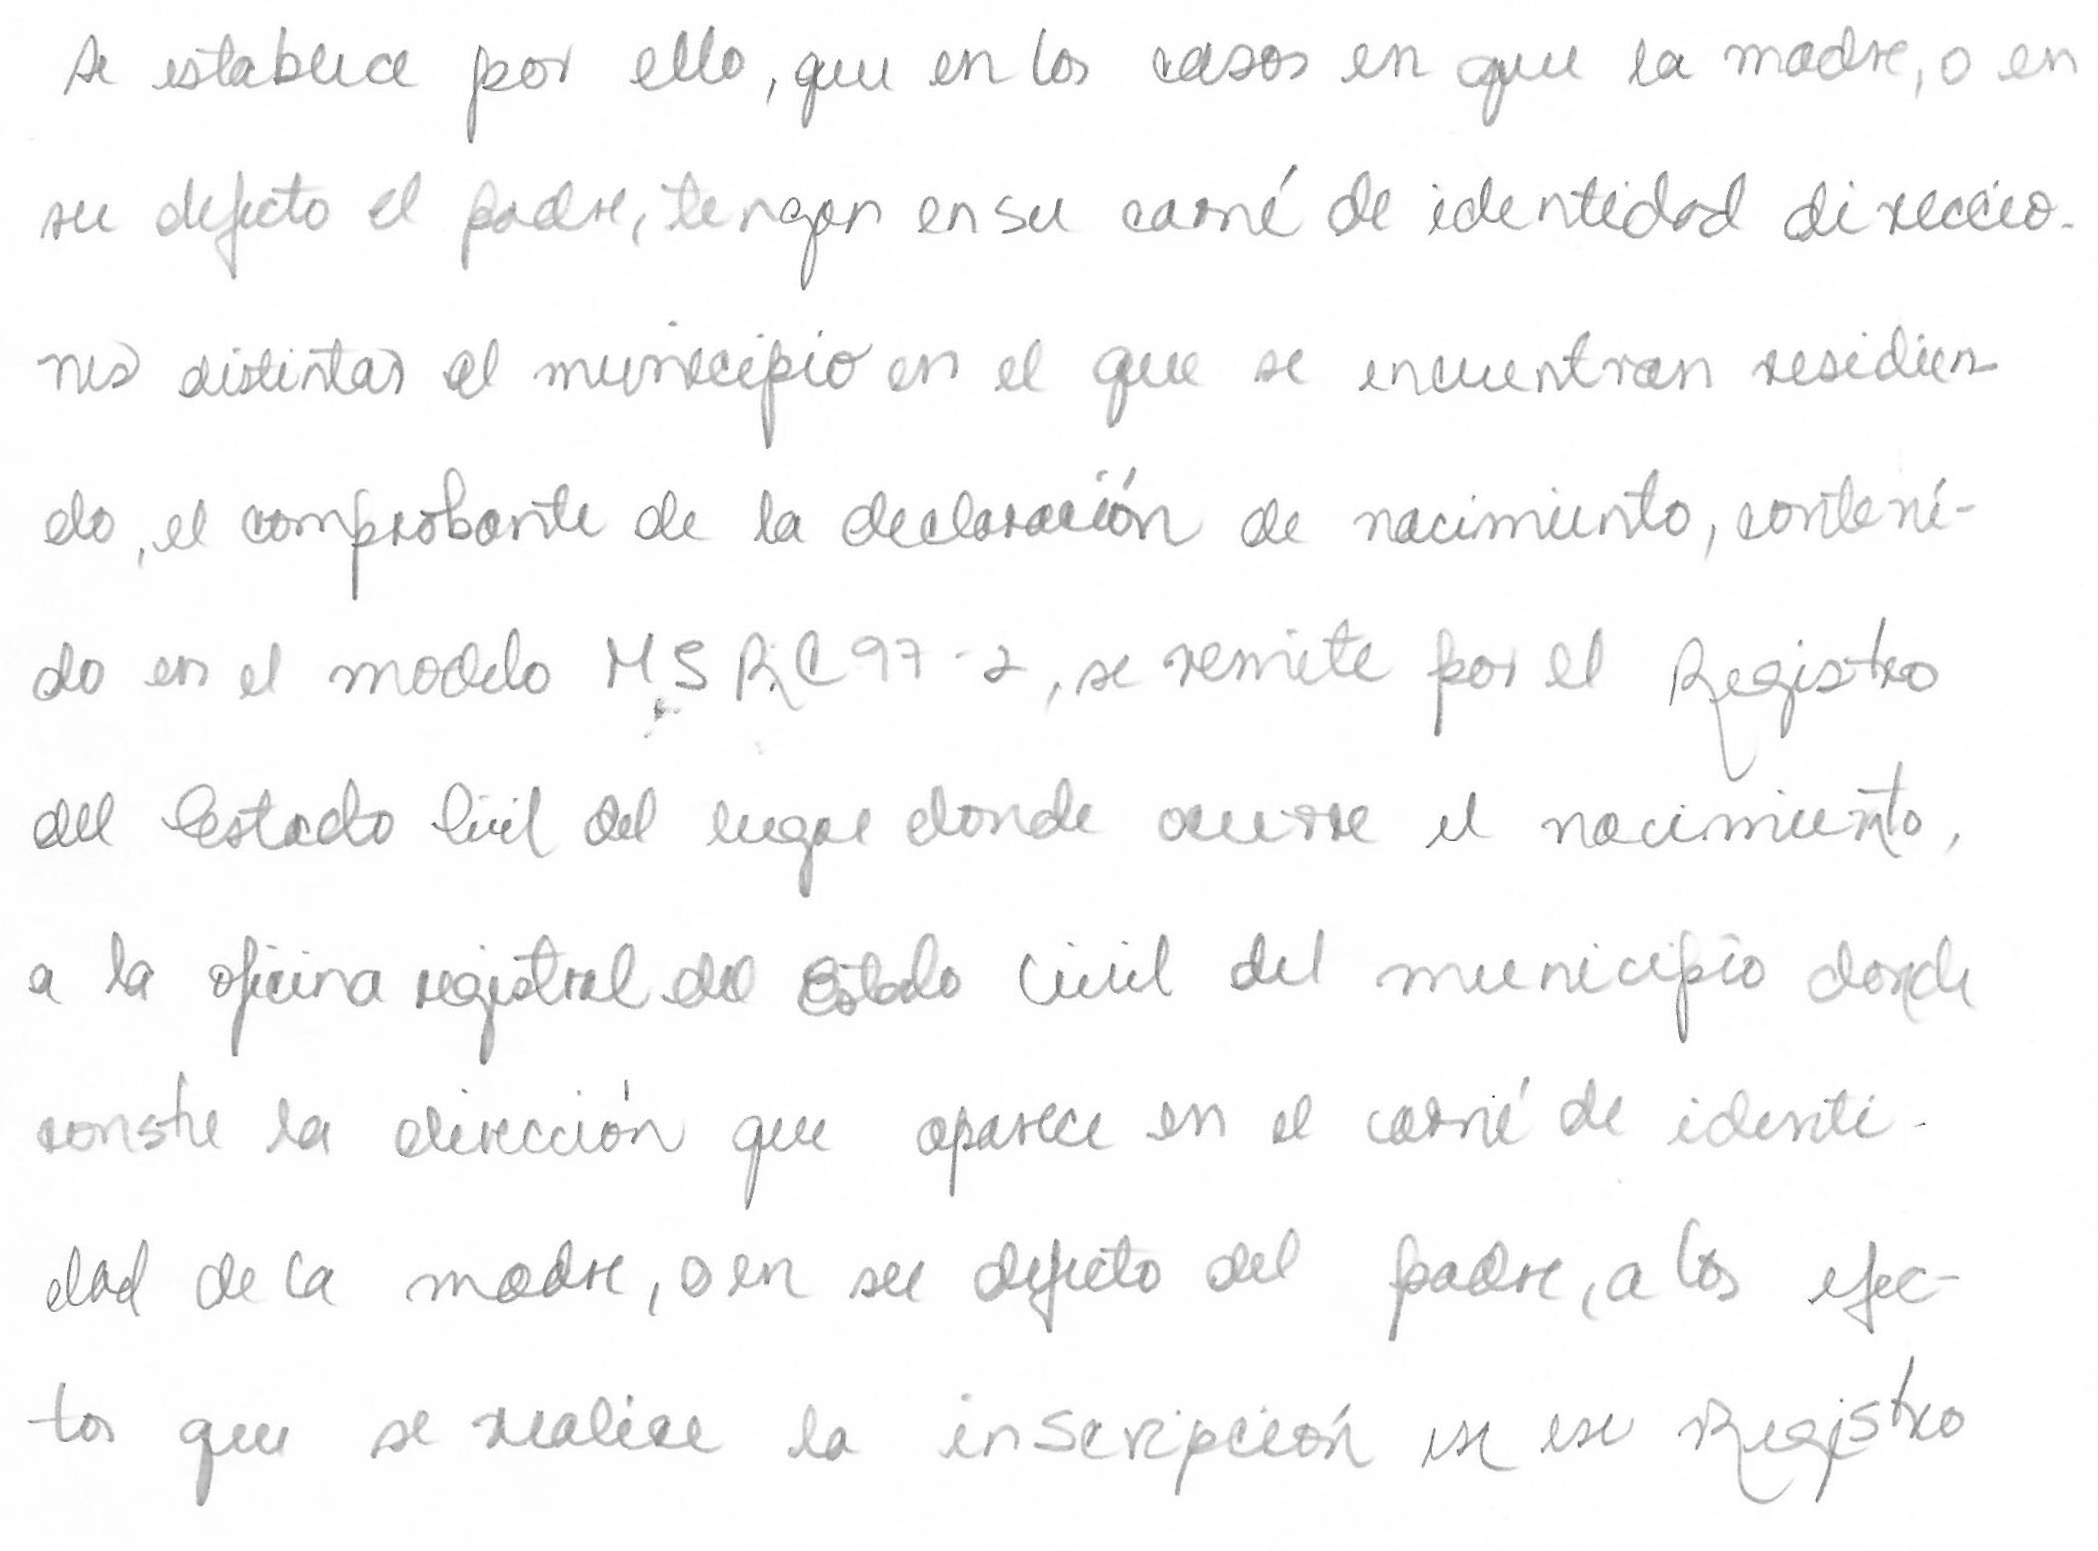 Se establece por ello, que en los casos en que la madre, o en
su defecto el padre, tengan en su carné de identidad direccio-
nes distintas al municipio en el que se encuentran residien-
do, el comprobante de la declaración de nacimiento, conteni-
do en el modelo M.S R.C 97-2, se remite por el Registro
del Estado Civil del lugar donde ocurre el nacimiento,
a la oficina registral del Estado Civil del municipio donde
conste la dirección que aparece en el carné de identi-
dad de la madre, o en su defecto del padre, a los efec-
tos que se realice la inscripción en ese Registro